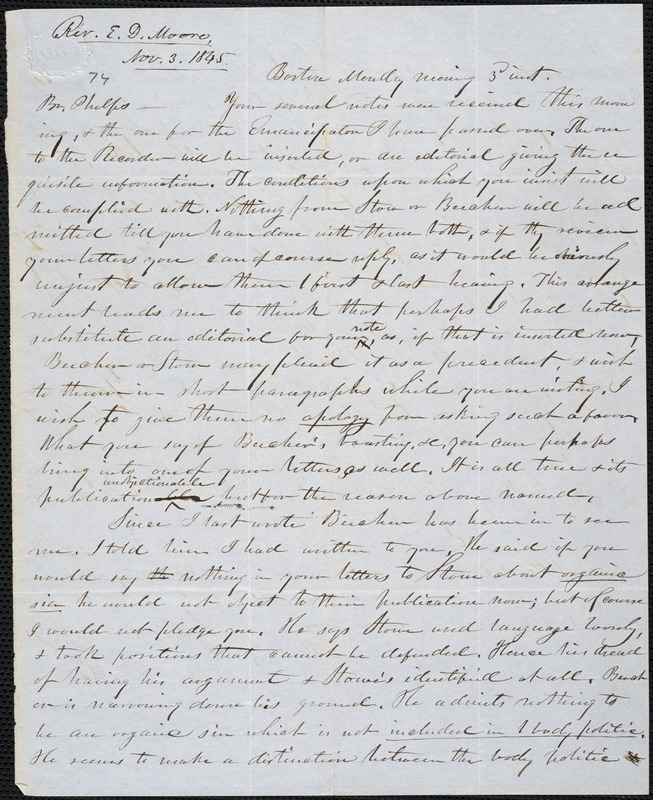 Rev. E. D. Moore,
Nov. 3. 1845.
74
Boston Monday morning 3d inst.
Br. Phelps — Your several notes were received this morn
ing, & the one for the Emancipator I have passed over. The one
to the Recorder will be inserted, or an editorial giving the re
quisite information. The conditions upon which you insist will
be complied with. Nothing from Stow or Beecher will be ad
mitted till you have done with them both, & if they review
your letters you can of course reply, as it would be obviously
unjust to allow them 1 first & last hearing. This arrange
ment leads me to think that perhaps I had better
substitute an editorial for your note, as, if that is inserted now,
Beecher & Stow may plead it as a precedent, & wish
to throw in short paragraphs while you are writing. I
wish to give them no apology for asking such a favor.
What you say of Beecher's boasting, &c, you can perhaps
bring into one of your letters as well. It is all true & its
publication unobjectionable but for the reason above named.
Since I last wrote Beecher has been in to see
me. I told him I had written to you, He said if you
would say nothing in your letters to Stow about organic
sin he would not object to their publication now; but of course
I would not pledge you. He says Stow used language loosely,
& took positions that cannot be defended. Hence his dread
of having his argument & Stowe's identified at all. Beech
er is narrowing down his ground. He admits nothing to
be an organic sin which is not included in 1 body politic.
He seems to make a distinction between the body politic &